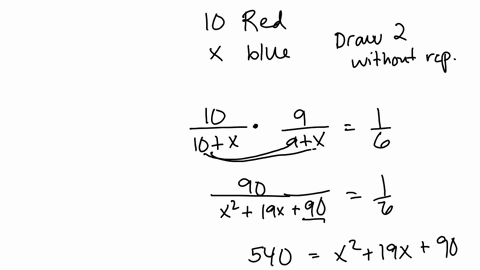 10 Red
x blue
Draw 2
without rep.
10/(10+x) · 9/(9+x) = 1/6
90/(x²+19x+90) = 1/6
540 = x²+19x+90